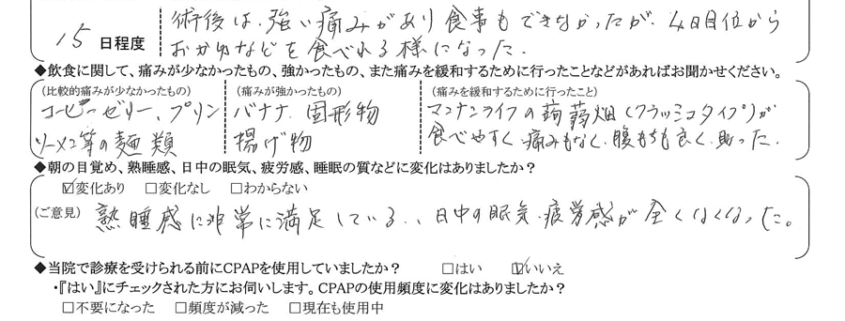 術後は、強い痛みがあり食事もできなかったが、4日目位から
15 日程度 おかゆなどを食べれる様になった.
◆飲食に関して、痛みが少なかったもの、強かったもの、また痛みを緩和するために行ったことなどがあればお聞かせください。
(比較的痛みが少なかったもの) (痛みが強かったもの) (痛みを緩和するために行ったこと)
コーヒーゼリー、プリン バナナ、固形物 マンナンライフの蒟蒻畑(クラッシュタイプ)が
ソーメン等の麺類 揚げ物 食べやすく、痛みもなく、腹もちも良く、助った.
◆朝の目覚め、熟睡感、日中の眠気、疲労感、睡眠の質などに変化はありましたか?
☑変化あり □変化なし □わからない
(ご意見) 熟睡感に非常に満足している、、日中の眠気・疲労感が全くなくなった。
◆当院で診療を受けられる前にCPAPを使用していましたか? □はい ☑いいえ
・『はい』にチェックされた方にお伺いします。CPAPの使用頻度に変化はありましたか?
□不要になった □頻度が減った □現在も使用中